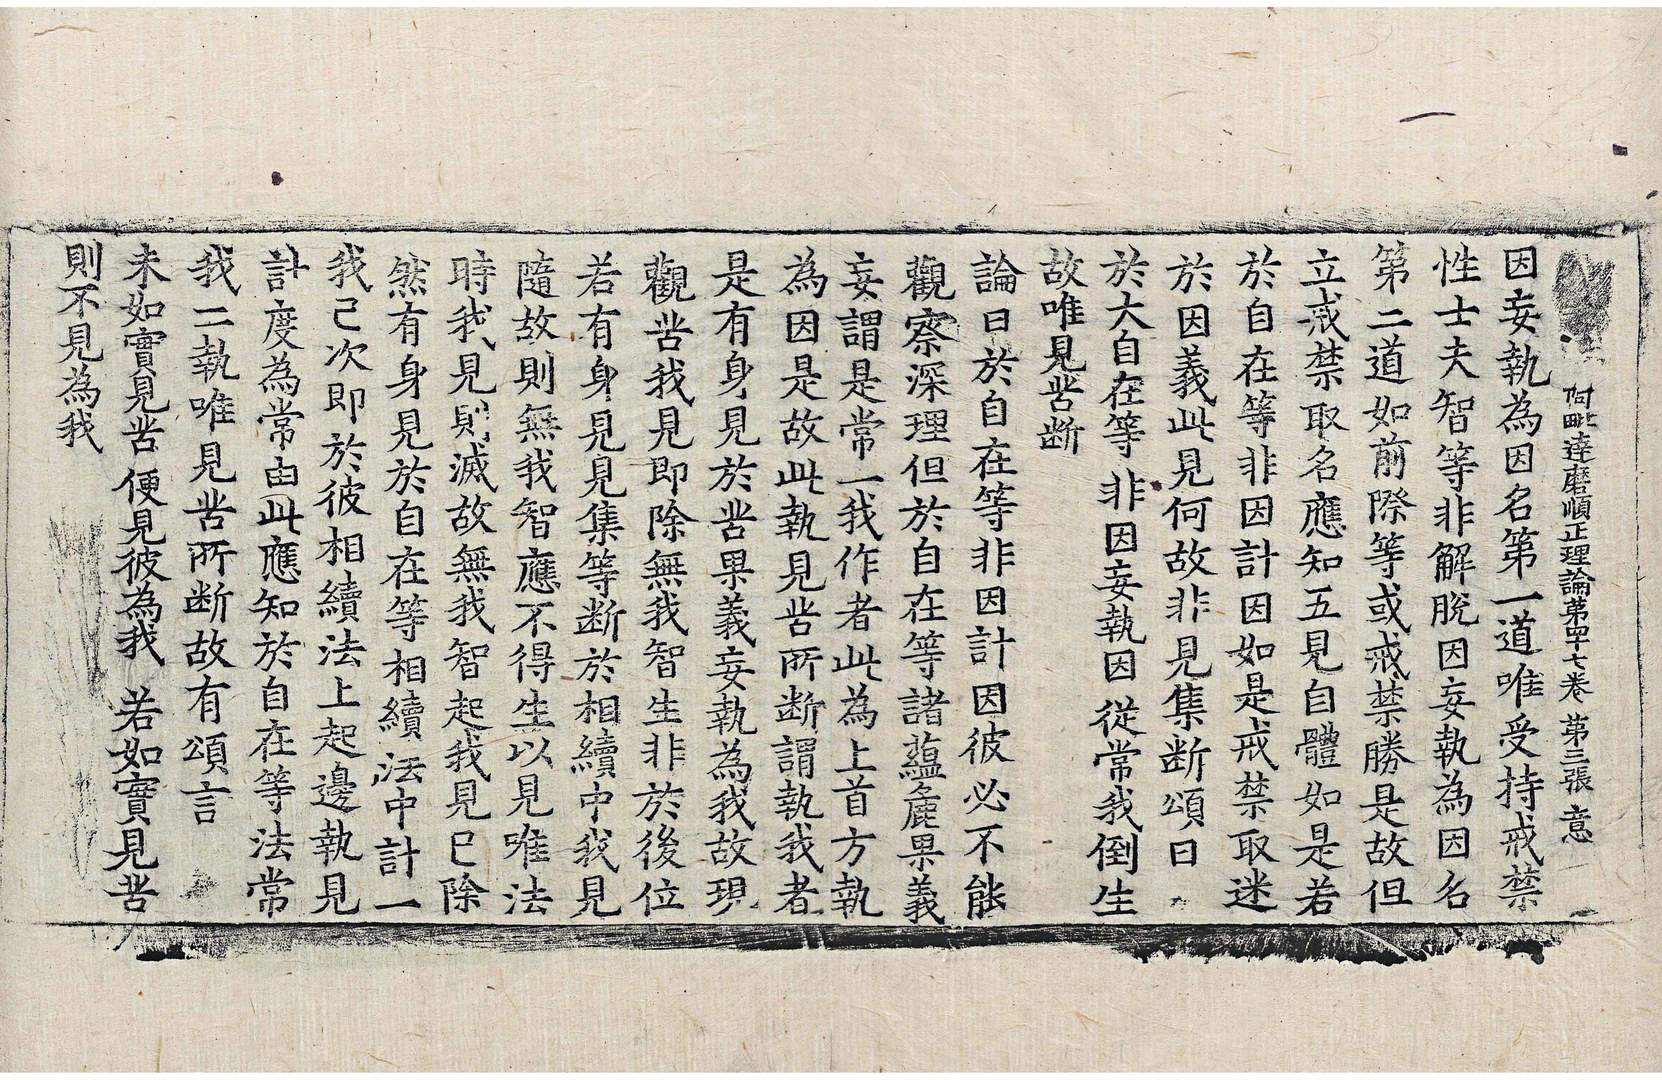 阿毗達磨順正理論第四十七卷 第三張 意
因妄執為因名第一道唯受持戒禁
性士夫智等非解脫因妄執為因名
第二道如前際等或戒禁勝是故但
立戒禁取名應知五見自體如是若
於自在等非因計因如是戒禁取迷
於因義此見何故非見集断頌曰
於大自在等 非因妄執因 從常我倒生
故唯見苦断
論曰於自在等非因計因彼必不能
觀察深理但於自在等諸蘊麁果義
妄謂是常一我作者此為上首方執
為因是故此執見苦所断謂執我者
是有身見於苦果義妄執為我故現
觀苦我見即除無我智生非於後位
若有身見見集等断於相續中我見
隨故則無我智應不得生以見唯法
時我見則滅故無我智起我見已除
然有身見於自在等相續法中計一
我已次即於彼相續法上起邊執見
計度為常由此應知於自在等法常
我二執唯見苦所断故有頌言
未如實見苦 便見彼為我 若如實見苦
則不見為我